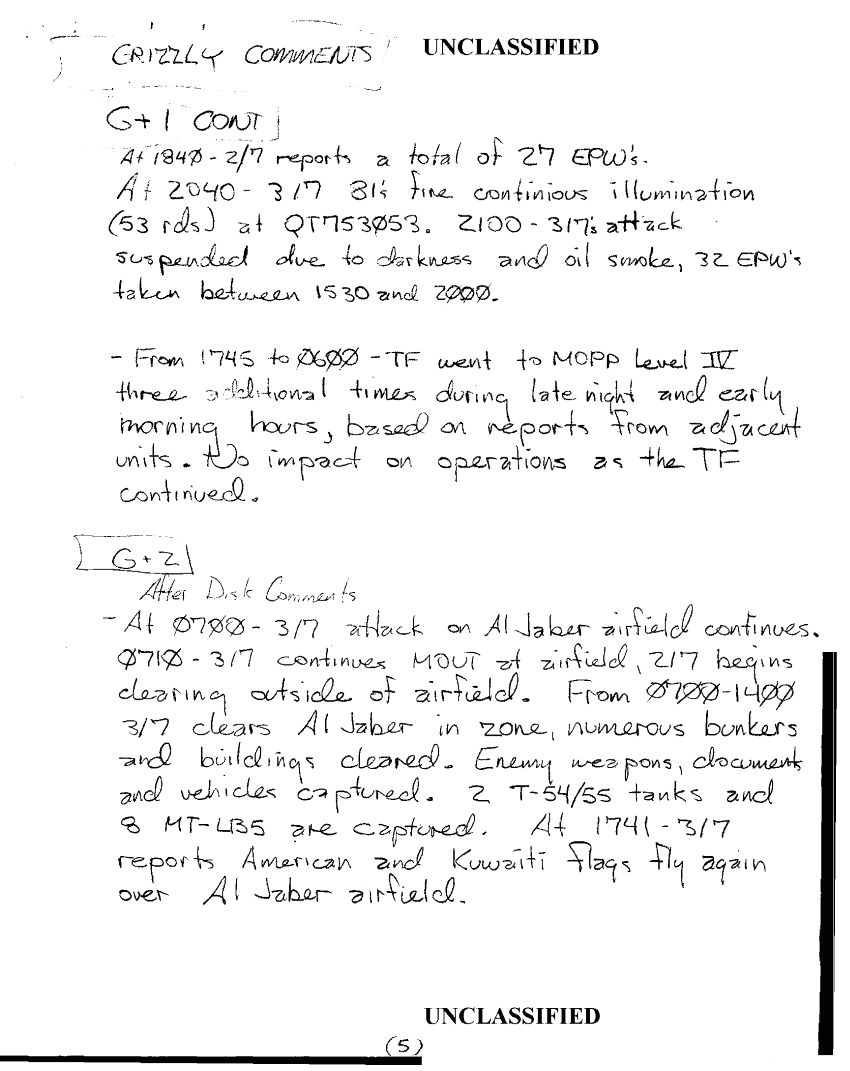 GRIZZLY COMMENTS UNCLASSIFIED
G+1 CONT
At 1840 - 2/7 reports a total of 27 EPW's.
At 2040 - 3/7 81's fire continious illumination
(53 rds) at QT753053. 2100 - 3/7's attack
suspended due to darkness and oil smoke, 32 EPW's
taken between 1530 and 2000.
- From 1745 to 0600 - TF went to MOPP Level IV
three additional times during late night and early
morning hours, based on reports from adjacent
units. No impact on operations as the TF
continued.
G+2
After Disk Comments
- At 0700 - 3/7 attack on Al Jaber airfield continues.
0710 - 3/7 continues MOUT at airfield, 2/7 begins
clearing outside of airfield. From 0700-1400
3/7 clears Al Jaber in zone, numerous bunkers
and buildings cleared. Enemy weapons, documents
and vehicles captured. 2 T-54/55 tanks and
8 MT-LBs are captured. At 1741 - 3/7
reports American and Kuwaiti flags fly again
over Al Jaber airfield.
UNCLASSIFIED
(5)